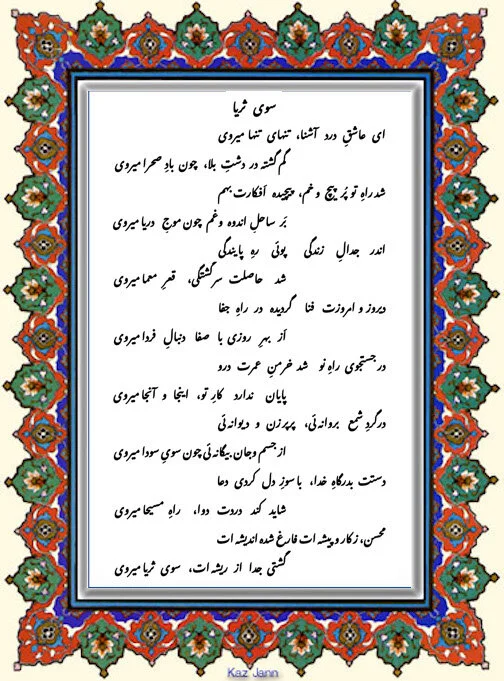 سوی ثریا
ای عاشقِ درد آشنا، تنهای تنها میروی
گم گشته در دشتِ بلا، چون بادِ صحرا میروی
شد راهِ تو پُر پیچ و غم، پیچیده اَفکارت بهم
بَر ساحلِ اندوه و غم چون موجِ دریا میروی
اندر جدالِ زندگی پوئی رهِ پایندگی
شد حاصلت سرگشتگی، قعرِ معما میروی
دیروز و امروزت فنا گردیده در راهِ جفا
اَز بهرِ روزی با صفا دنبالِ فردا میروی
در جستجوی راهِ نو شد خرمنِ عمرت درو
پایان ندارد کارِ تو، اینجا و آنجا میروی
درگردِ شمع پروانه ئی، پرپرزن و دیوانه ئی
از جسم و جان بیگانه ئی چون سویِ سودا میروی
دستت بدرگاهِ خدا، با سوزِ دل کردی دعا
شاید کند دردت دوا، راهِ مسیحا میروی
محسن، ز کار و پیشه ات فارغ شده اندیشه ات
گشتی جدا از ریشه ات، سوی ثریا میروی
Kaz Jann